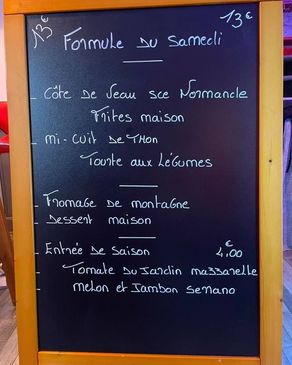 13€ 13€
Formule Du Samedi
- Côte De Veau sce Normande
Frites maison
- mi-cuit De Thon
Tourte aux Légumes
- Fromage De montagne
- Dessert maison
- Entrée De Saison 4,00€
- Tomate Du Jardin mozzarelle
- melon et Jambon Serrano